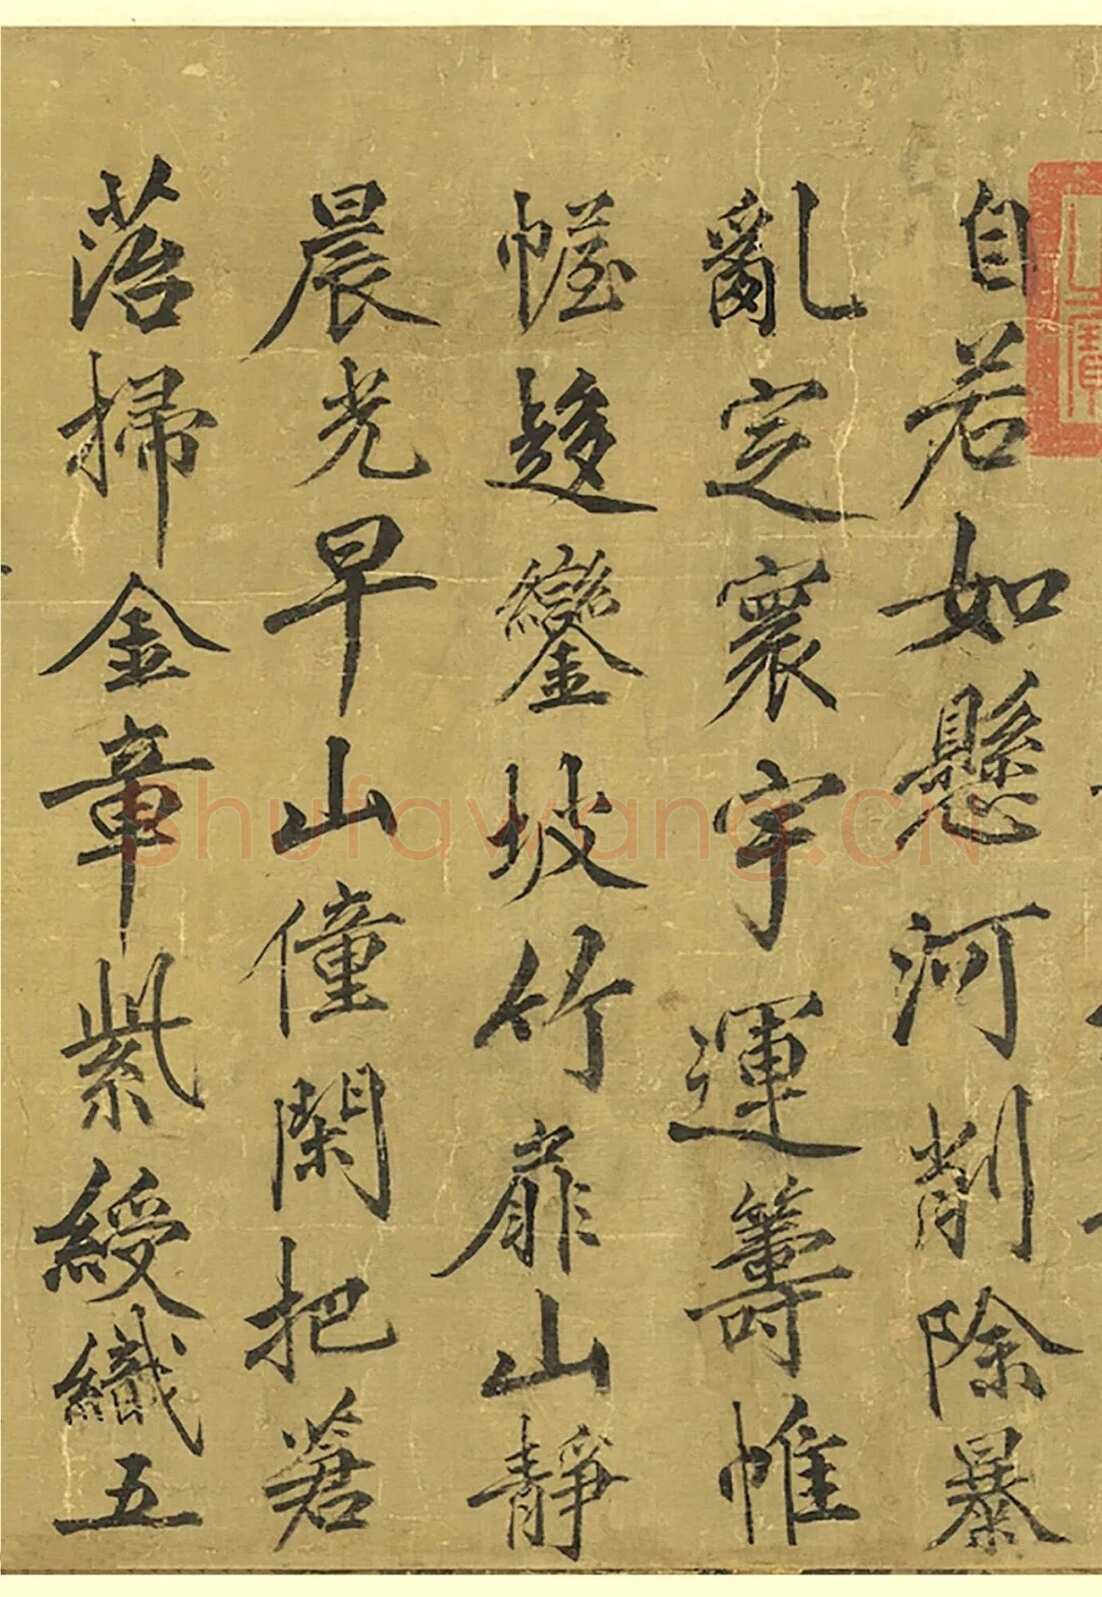 自若如懸河削除暴
亂定寰宇運籌帷
幄趍鑾坡竹扉山靜
晨光早山僮閑把
落掃金章紫綬織五
Shufawang.CN